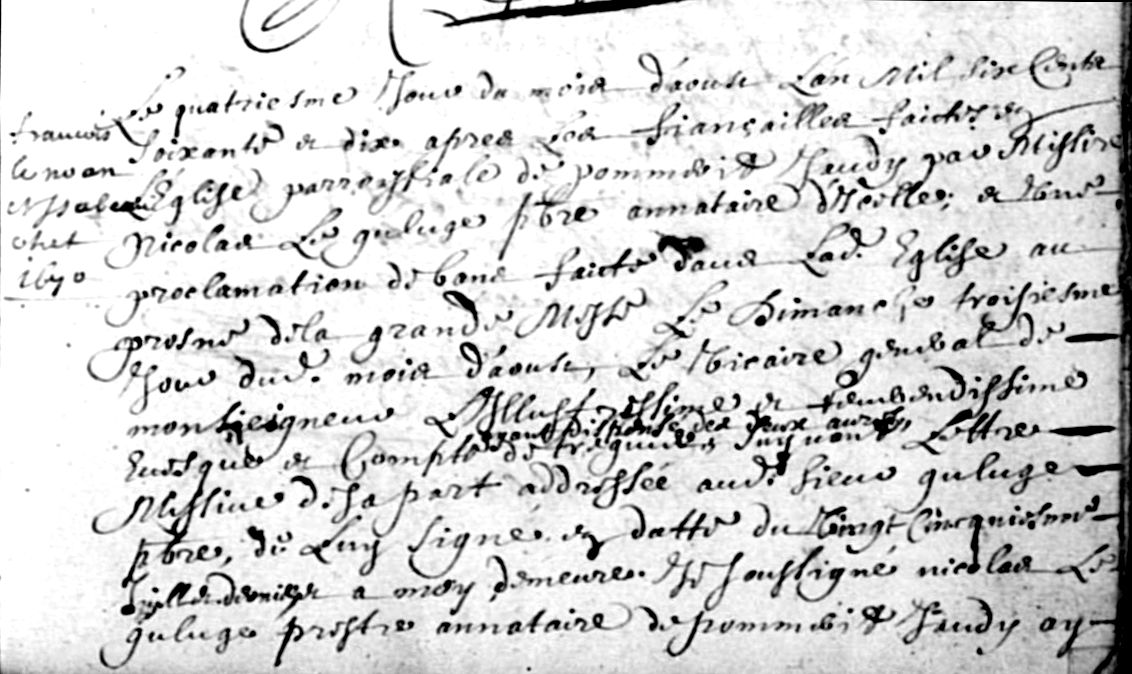 Le quatriesme Jour du mois d'aoust L'an Mil six Cents
Soixante et dix apres Les fiançailles faictes en
L'Eglise parroissialle de pommerit Jaudy par Missire
Nicolas Le guluge pbre annataire d'Icelle; et Une
proclamation de bans faicte dans Lad. Eglise au
prosne dela grande Messe Le Dimanche troisiesme
Jour dud. mois d'aoust, Le Vicaire general de
monseigneur L'Illustrissime et reverendissime
ayant dispensé des deux autres
Evesque et Compte de treguier, Suyvant Lettre
Missive desa part addressée aud. sieur guluge
pbre, de Luy signé, en datte du Vingt Cincquiesme
Juillet dernier a moy demeuré. Je soussigné nicolas Le
guluge prestre annataire de pommerit Jaudy ay
francois
le noan
1670